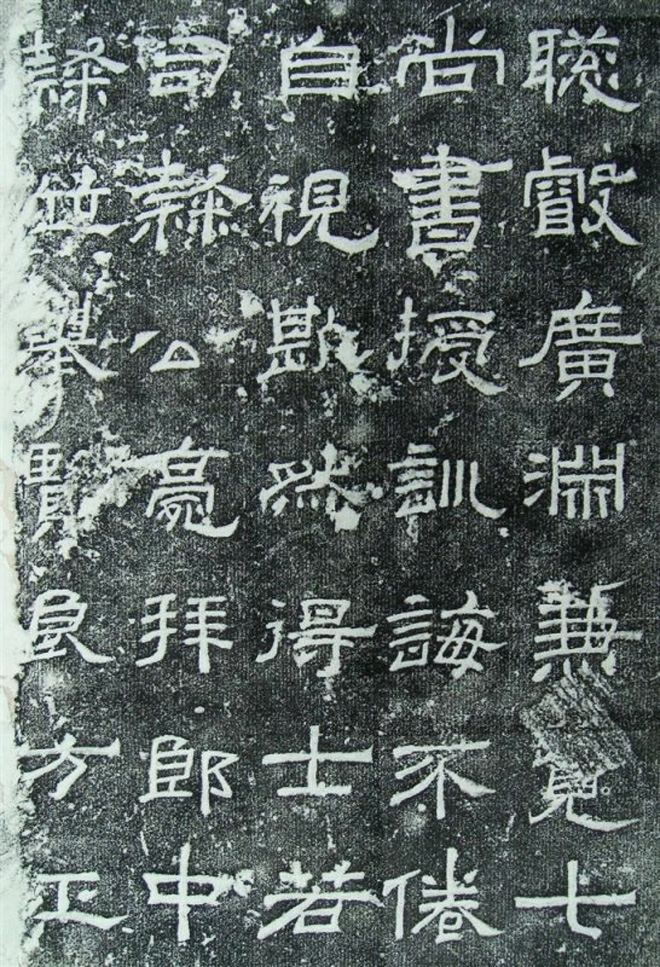 聰叡廣淵兼覽七
尚書授訓誨不倦
自視欿然得士若
司隸公亮拜郎中
隸世舉賢良方正